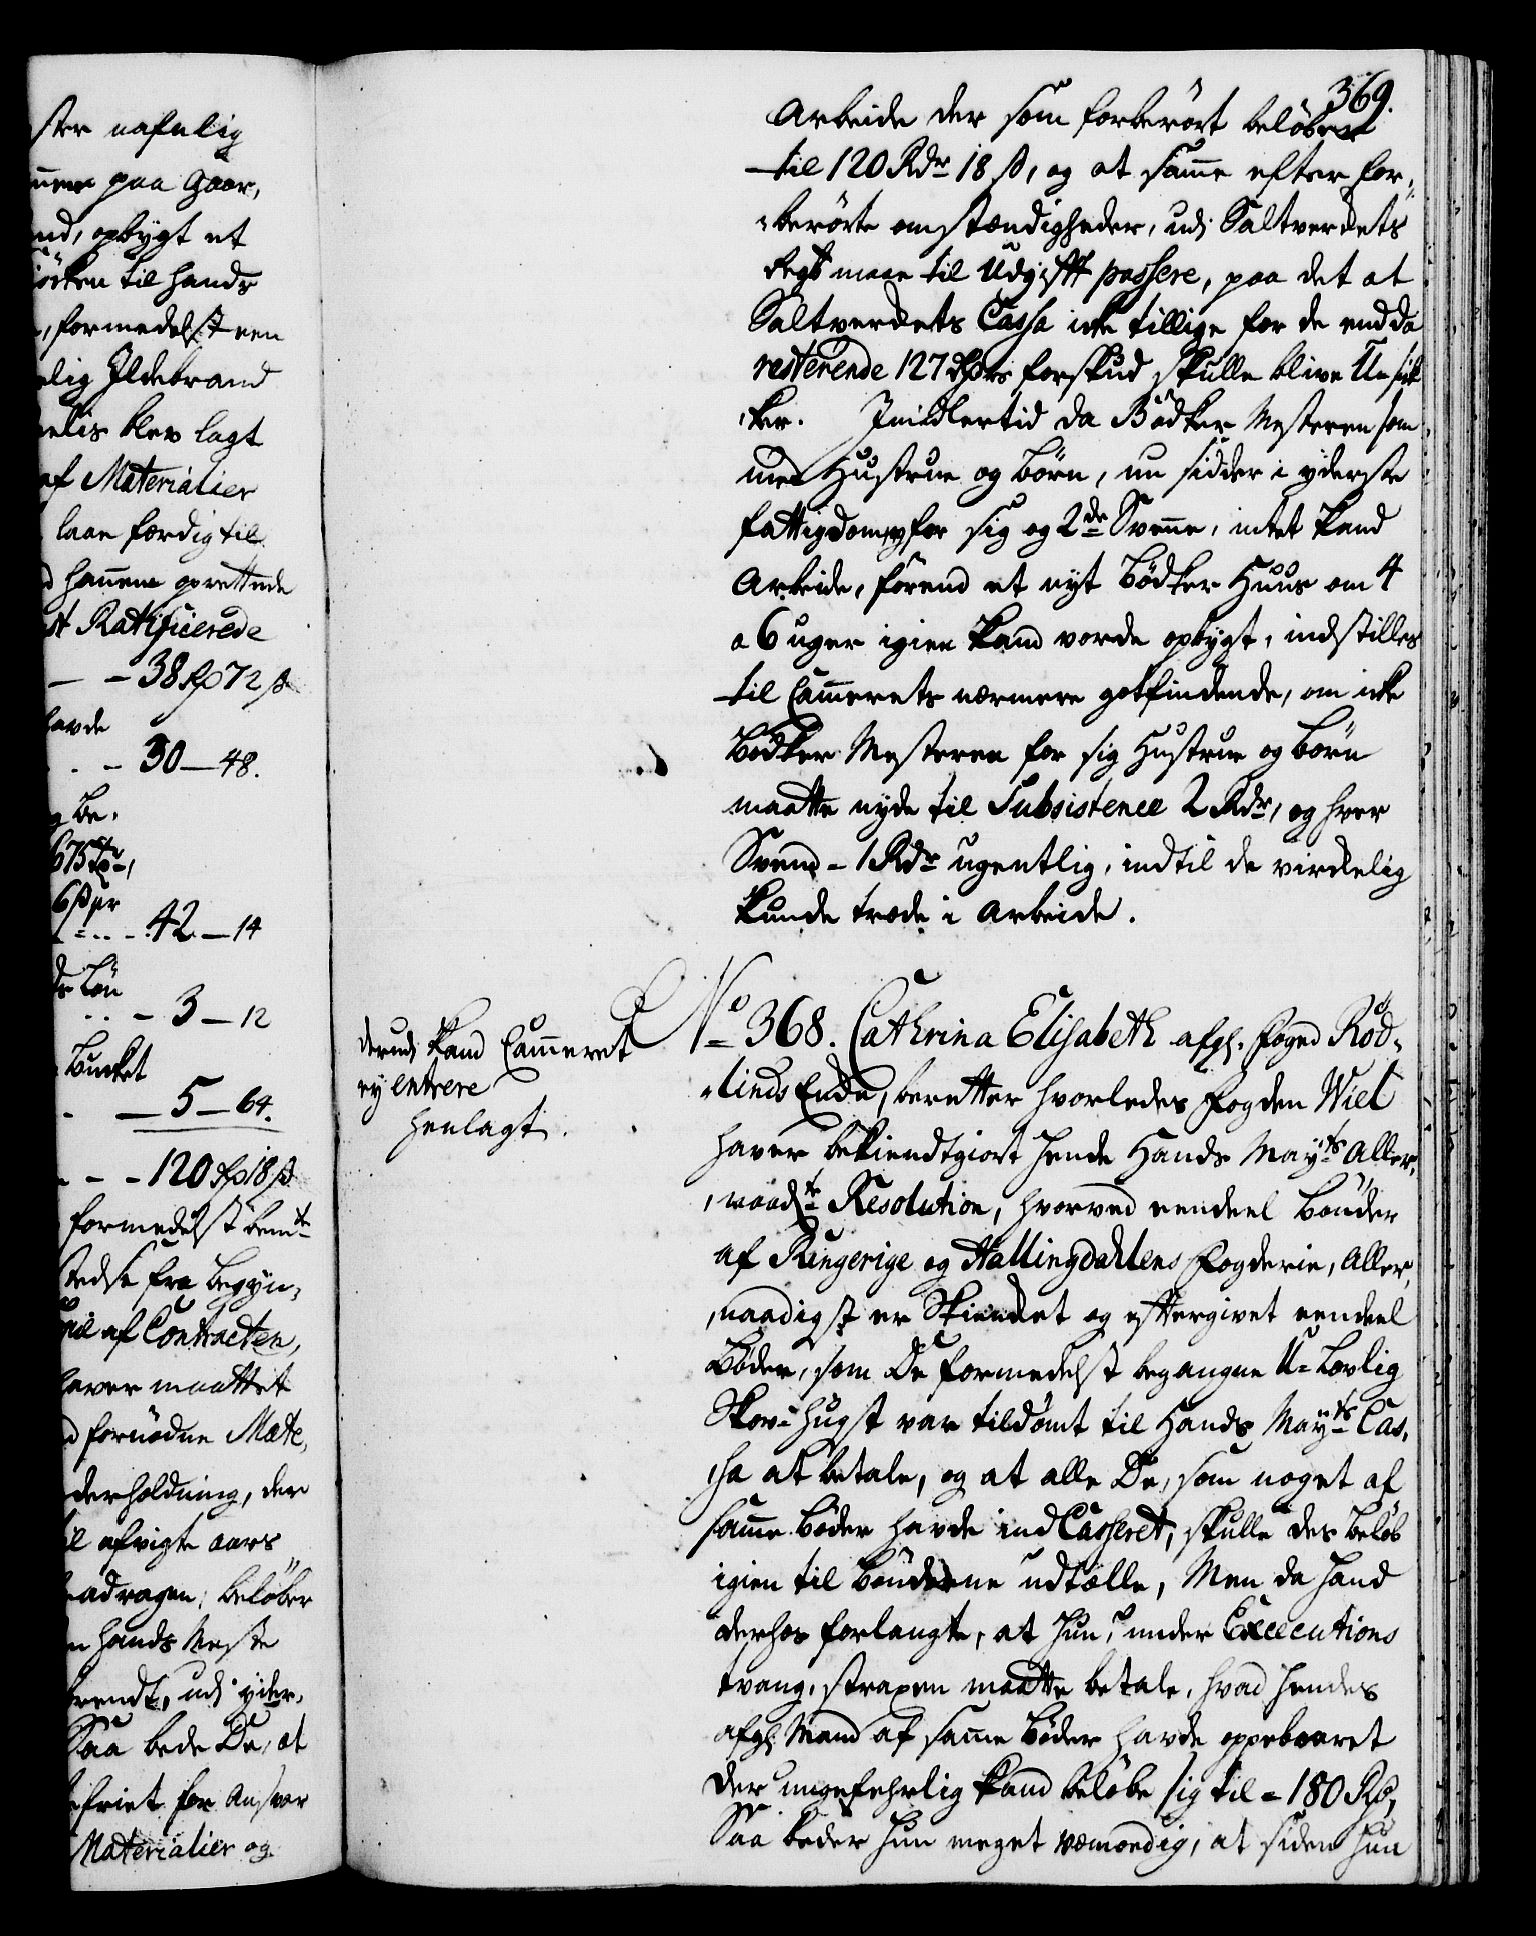 ster nafnlig
paa Gaar,
opbygt et
til hands
formedelst een
Ildebrand
blev lagt
af Materialier
laae færdig til
oprettede
Ratificerede
38 Rd 72 ß
havde
30 – 48.
g Be-
675
6 ß pr
42 – 14
Løn
3 – 12
5 – 64.
120 Rd 18 ß
formedelst bemte
fra begyn-
af Contracten,
haver maattet
fornødne Mate,
derholdning, der
afvigte aars
beløber
hands Meste
brendt, udj yder,
Saa bede De, at
friet for Ansvar
Materialier og
369.
Arbeide der som forberørt beløber
til 120 Rdr 18 ß, og at samme efter for-
berørte omstændigheder, udj Saltverkets
Regsk maae til Udgift passere, paa det at
Saltverkets Cassa icke tillige for de endda
resterende 127 Rdrs forskud skulle blive U-sik
ker. Imidlertid da Bødker Mesteren som
med Hustrue og Børn, nu sidder i yderste
fattigdom, for sig og 2de Svenne, intet kand
Arbeide, førend et nyt Bødker Huus om 4
a 6 uger igien kand vorde opbygt, indstilles
til Cammerets nærmere gotfindende, om icke
Bødker Mesteren for sig Hustrue og Børn
maatte nyde til Subsistence 2 Rdr, og hver
Svend – 1 Rdr ugentlig, indtil de virckelig
kunde træde i Arbeide.
derudj kand Cammeret
ey entrere
henlagt.
No 368. Cathrina Elisabeth afg. Foged Rød-
linds Enke, beretter hvorledes Fogden Wiel
haver bekiendtgiort hende Hands Mayts Aller-
naadste Resolution, hvorved eendeel Bønder
af Ringerige og Hallingdahlens Fogderie, Aller,
naadigst er Skiencket og eftergivet eendeel
Bøder, som De formedelst begangne U-Lovlig
Skov-hugst var tildømt til Hands Mayts Cas,
sa at betale, og at alle De, som noget af
samme Bøder havde ind Casseret, skulle des beløb
igien til Bønderne udtælle, Men da hand
derhos forlangte, at hun, under Executions
tvang, straxen maatte betale, hvad hendes
afg: Mand af samme Bøder havde oppebaaret
der ungefehrlig kand beløbe sig til – 180 Rd,
Saa beder hun meget veemoedig, at siden hun